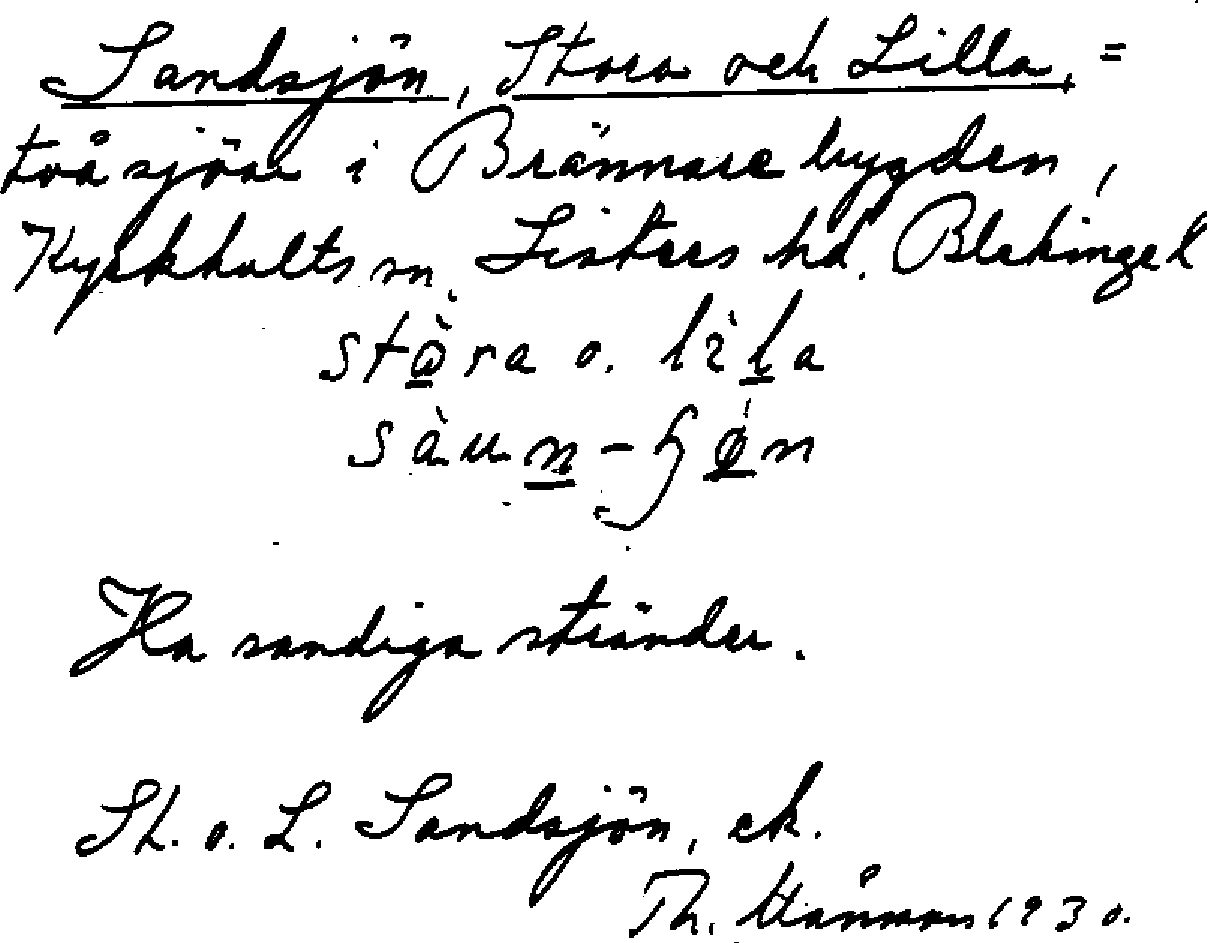 Sandsjön, Stora och Lilla, =
två sjöar i Brännarebygden,
Kyrkhults sn. Listers hd. Blekinge l
stòra o. lìla
sàun-ɧǿn
Ha sandiga stränder.
St. o. L. Sandsjön, ek.
Th. 1930.